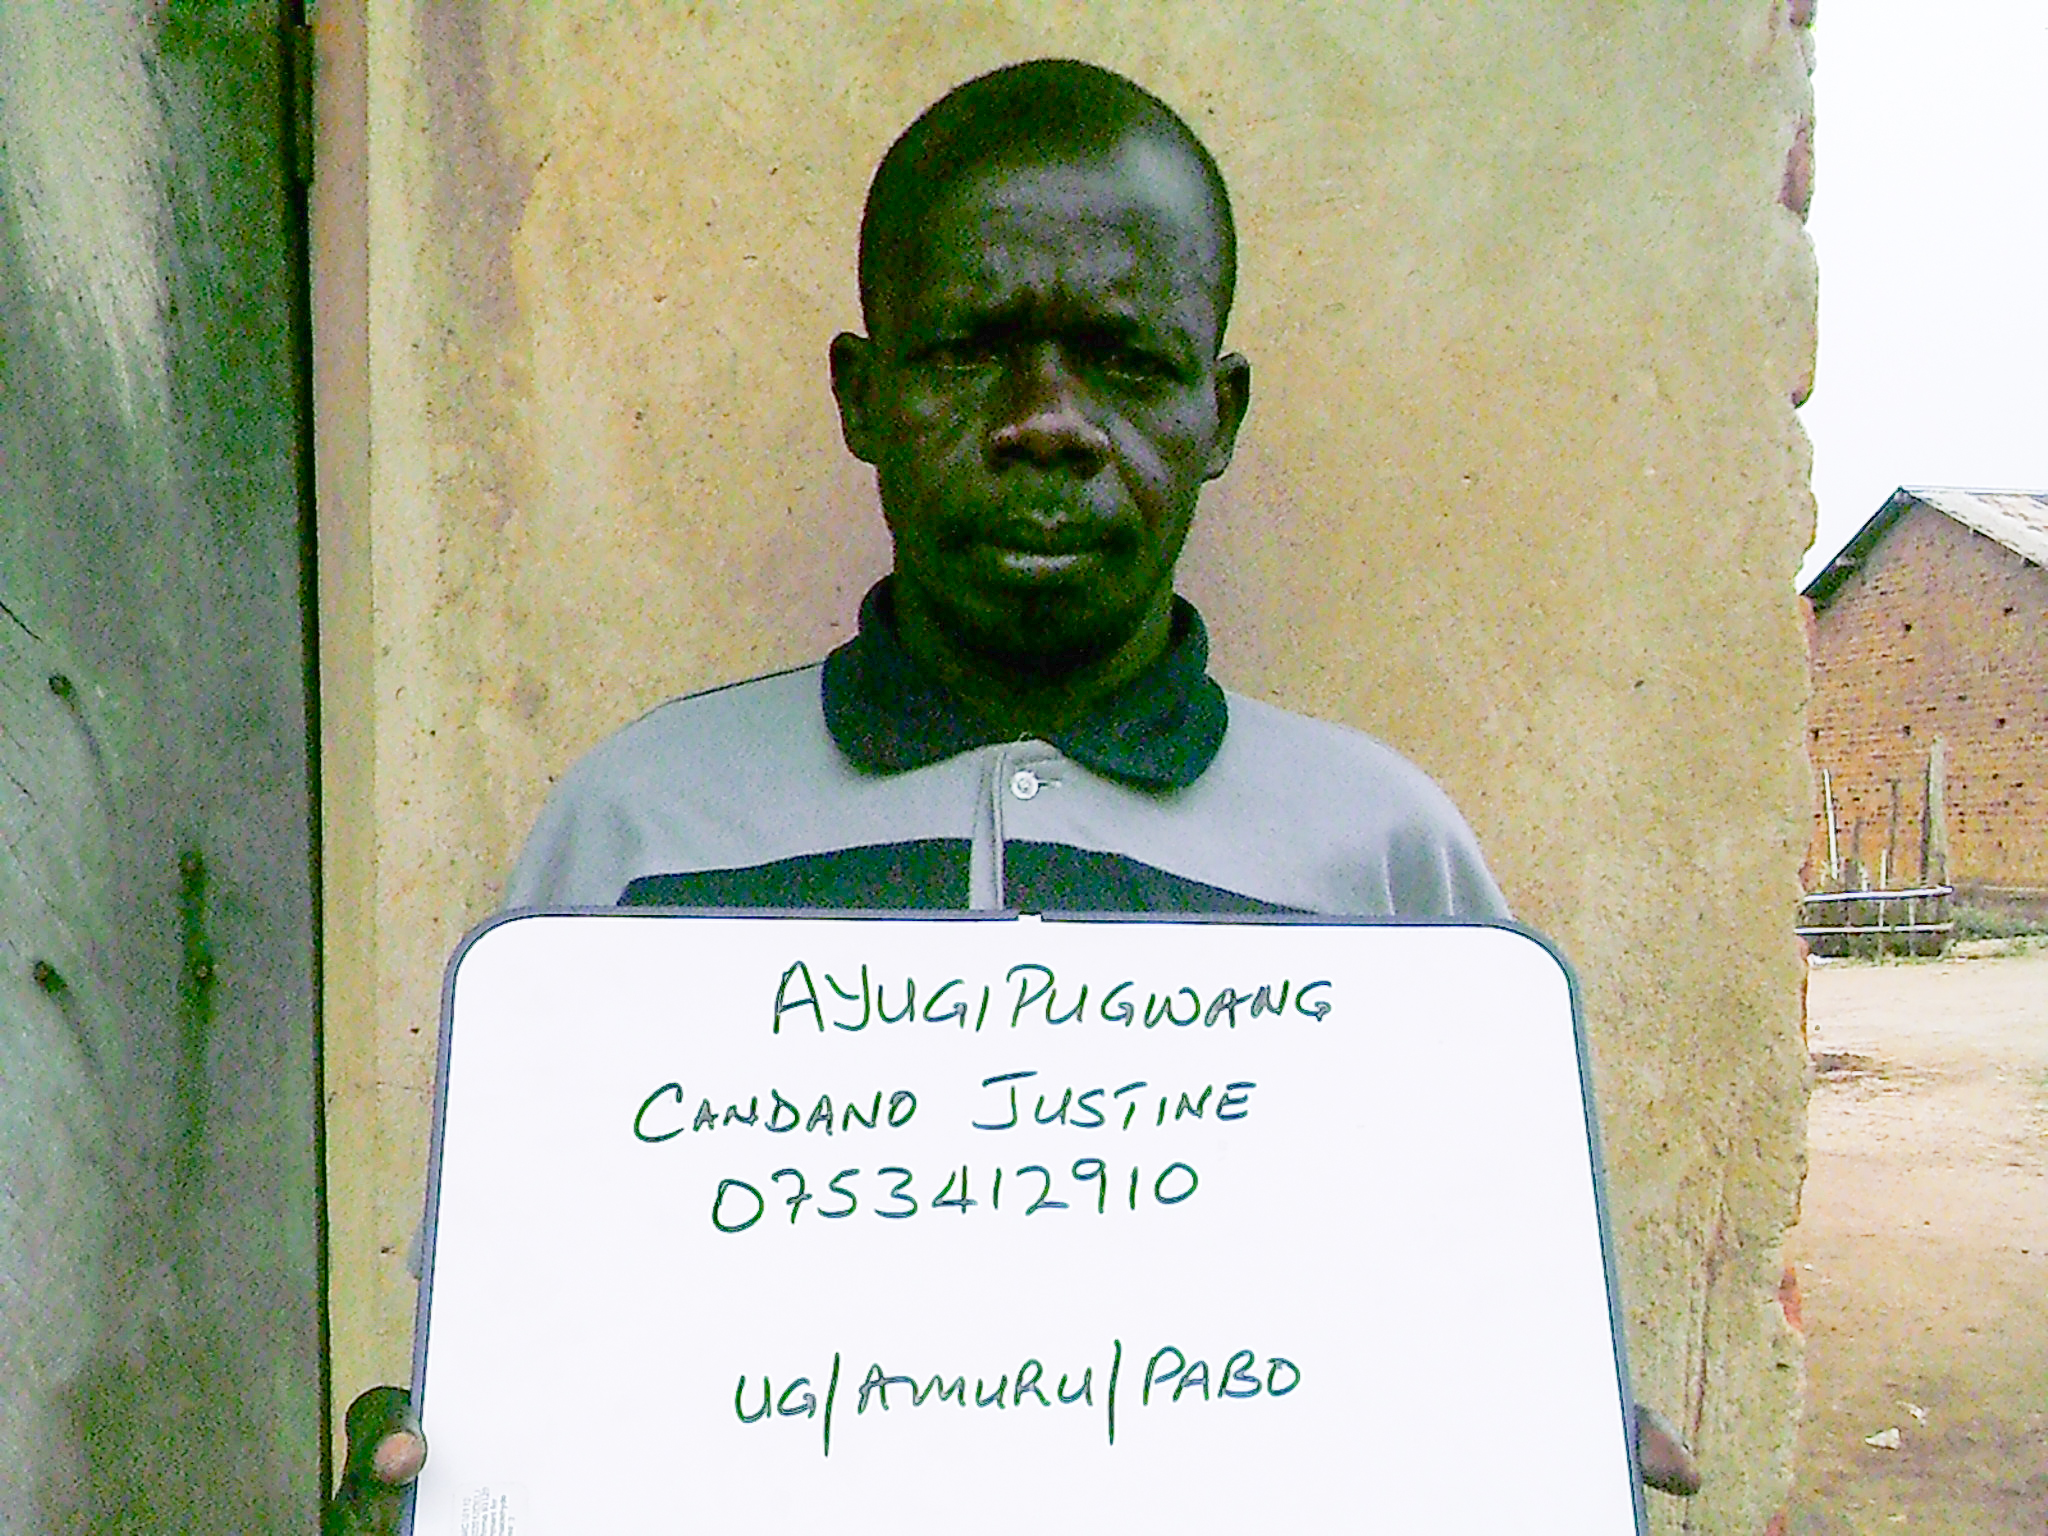 AYUGIPUGWANG
CANDANO JUSTINE
0753412910
UG/AMURU/PABO